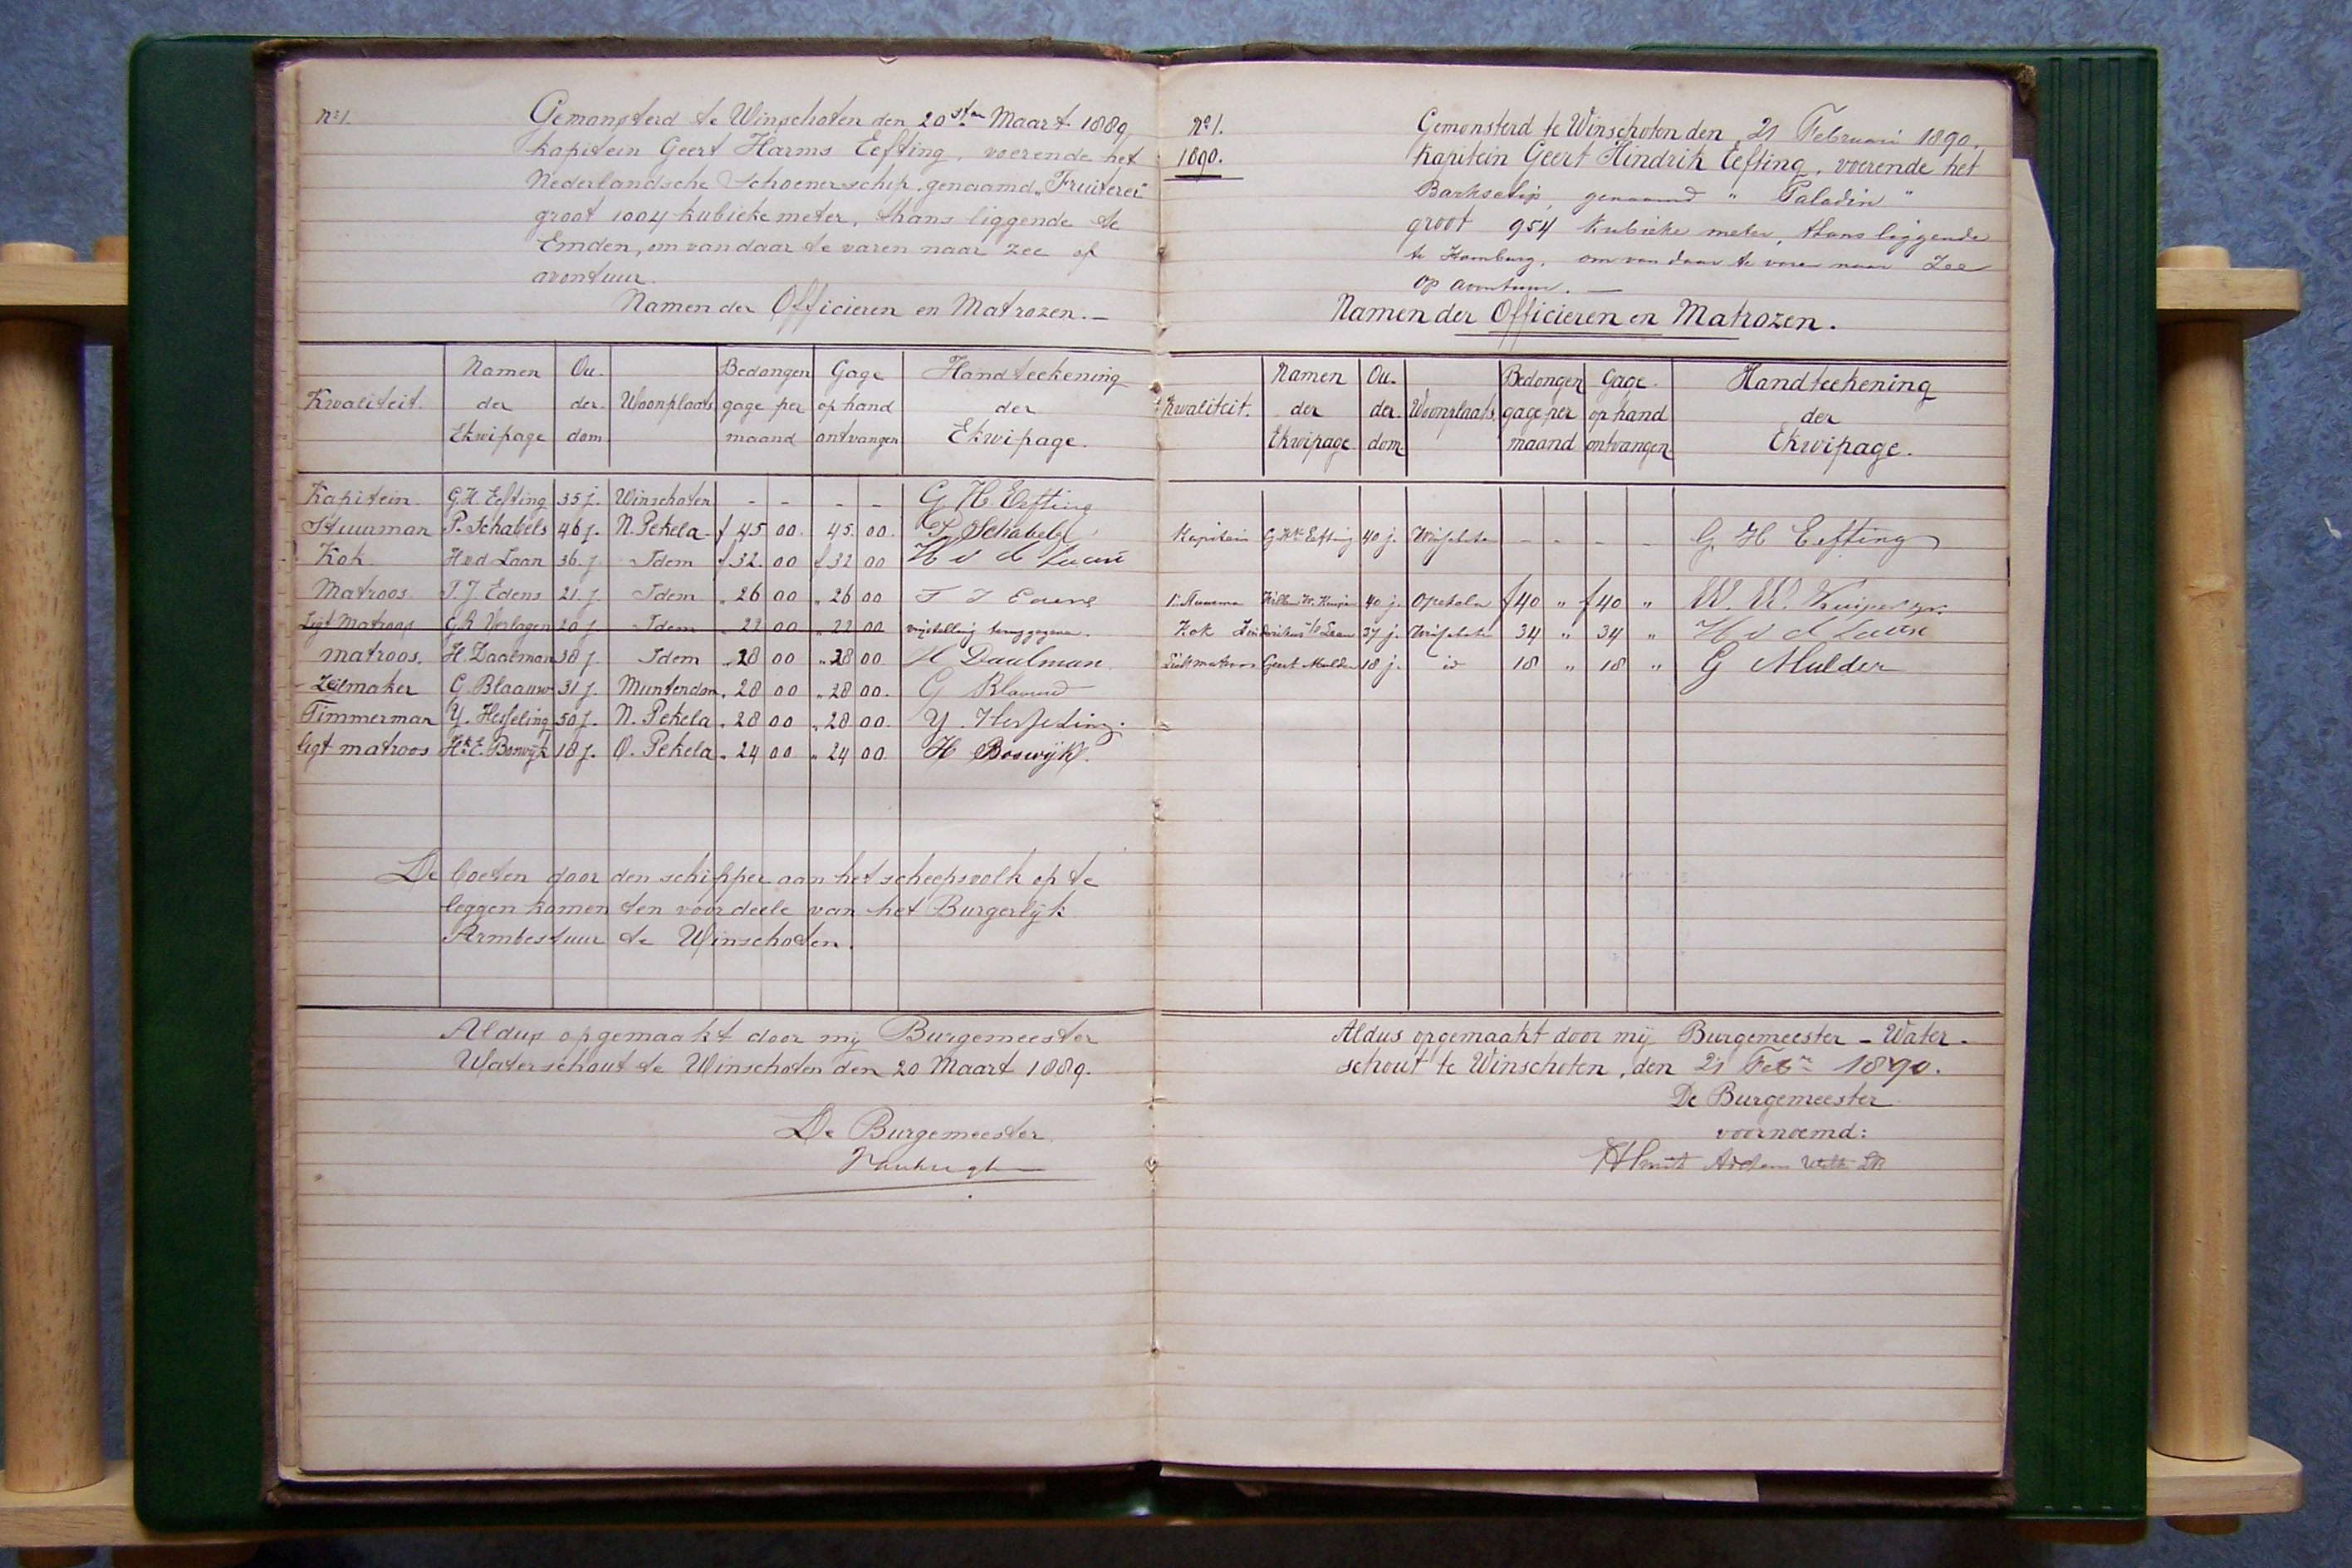 No 1.
Gemonsterd te Winschoten den 20sten Maart 1889
Kapitein Geert Harms Eefting, voerende het
Nederlandsche Schoenerschip, genaamd "Fruiterer"
groot 1004 kubieke meter, thans liggende te
Emden, om van daar te varen naar zee op
avontuur.
Namen der Officieren en Matrozen.—
Kwaliteit. Namen der Ekwipage Ou-der-dom Woonplaats Bedongen gage per maand Gage op hand ontvangen Handteekening der Ekwipage.
Kapitein G.H. Eefting 35 j. Winschoten - - - - G H Eefting
Stuurman P. Schabels 46 j. N. Pekela f 45 00. 45. 00. P Schabels
Kok H.v.d Laan 36. j. Idem f 32. 00 f 32 00 H v d Laan
Matroos T. J. Edens 21. j. Idem " 26 00 " 26 00 T J Edens
Ligt Matroos G.R. Verlagen 20 j Idem " 22 00 " 22 00
matroos. H. Daalman 38 j. Idem " 28 00 " 28 00. H Daalman
Zeilmaker G. Blaauw 31 j. Muntendam " 28 00 " 28 00. G Blaauw
Timmerman Y. Hesseling 50 j. N. Pekela " 28 00 " 28 00. Y. Hesseling.
ligt matroos Hk. E. Boswijk 18 j. O. Pekela " 24 00 " 24 00. H Boswijk.
De boeten door den schipper aan het scheepsvolk op te
leggen komen ten voordeele van het Burgerlijk
Armbestuur te Winschoten.
Aldus opgemaakt door mij Burgemeester
Waterschout te Winschoten den 20 Maart 1889.
De Burgemeester
No 1.
1890.
Gemonsterd te Winschoten den 21 Februari 1890.
Kapitein Geert Hindrik Eefting, voerende het
Barkschip, genaamd " Paladin "
groot 954 kubieke meter, thans liggende
te Hamburg, om van daar te varen naar Zee
op avontuur. —
Namen der Officieren en Matrozen.
Kwaliteit. Namen der Ekwipage Ou-der-dom. Woonplaats. Bedongen gage per maand Gage op hand ontvangen Handteekening der Ekwipage.
Kapitein G Hk Eefting 40 j. Winschoten - - - - G H Eefting
Willem W. Kuiper 40 j. Opekela f 40 " f 40 " W. W. Kuiper
Kok Hindrikus v/d Laan 37 j. Winschoten 34 " 34 " H v d Laan
Lichtmatroos Geert Mulder 18 j. id 18 " 18 " G Mulder
Aldus opgemaakt door mij Burgemeester - Water-
schout te Winschoten, den 21 Febr. 1890.
De Burgemeester
voornoemd: